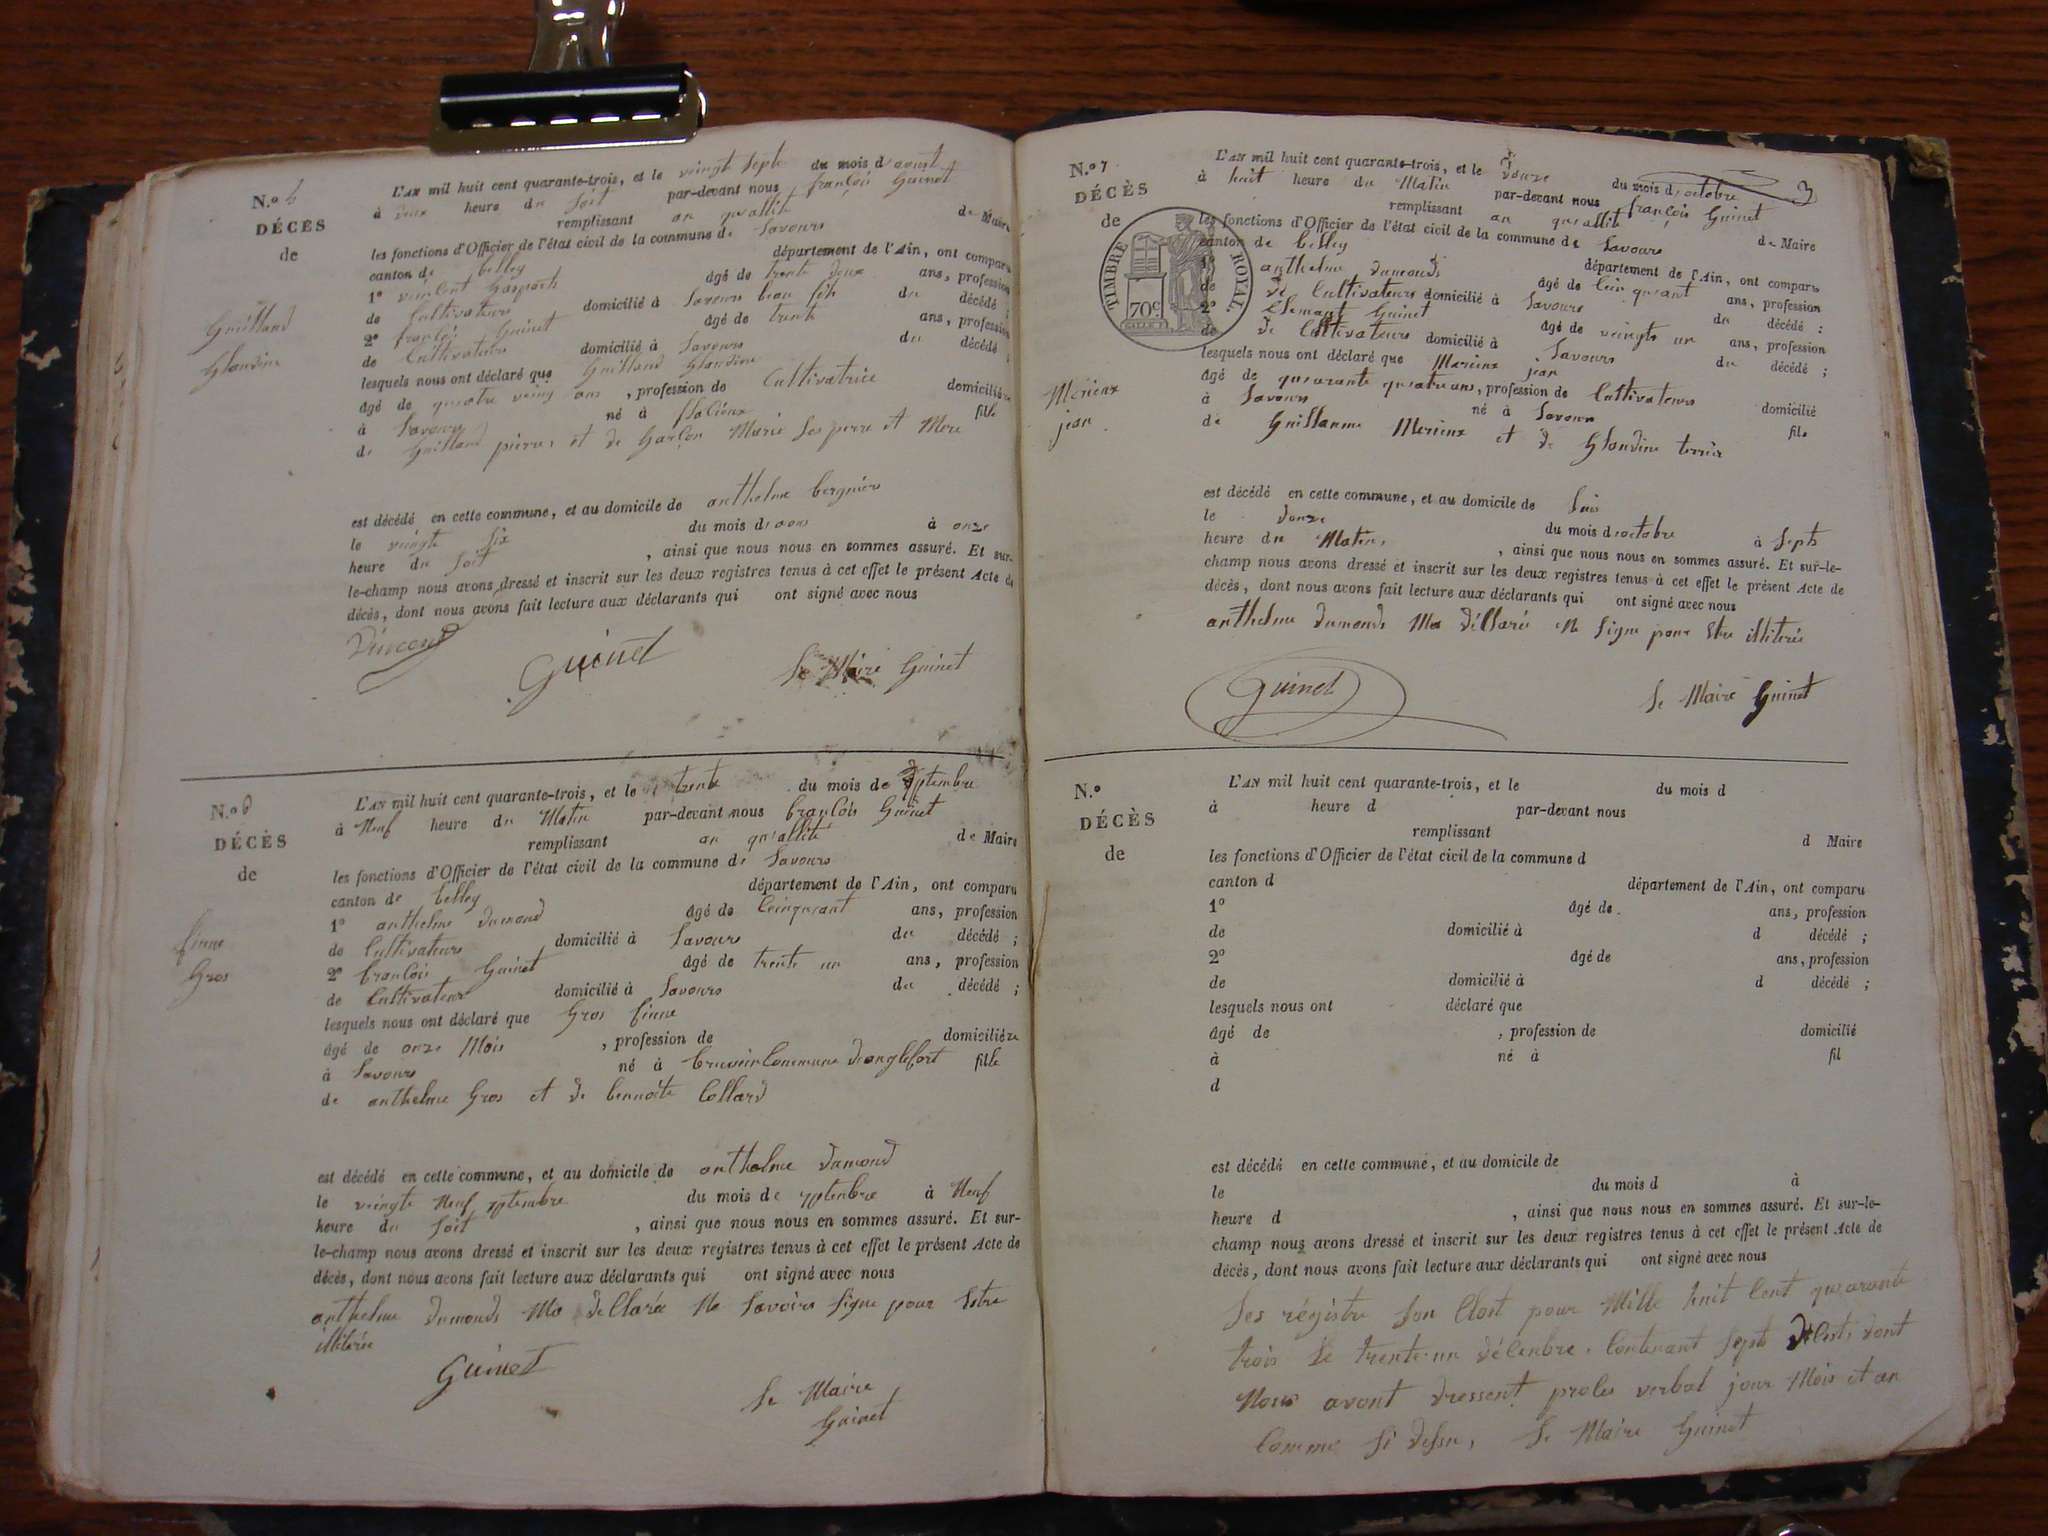 N.o
DÉCÈS
de
Guilland
Glandine
L'AN mil huit cent quarante-trois, et le veingte septe du mois d'
à deux heure du soit par-devant nous françois Guinet
remplissant an quallité de Maire
les fonctions d'Officier de l'état civil de la commune de Savours
canton de belley département de l'Ain, ont comparu
1° vincent âgé de trente deux ans, profession
de Cultivateurs domicilié à Savours beau fils du décédé ;
2° françois Guinet âgé de trente ans, profession
de Cultivateurs domicilié à Savours du décédé ;
lesquels nous ont déclaré que Guilland Glandine
âgé de quatre veing ans , profession de Cultivatrice domicilière
à Savours né à fille
de Guilland pierre, et de Marie Ses perre et Mere
est décédé en cette commune, et au domicile de anthelme
le veingte six du mois d' à onze
heure du soit , ainsi que nous nous en sommes assuré. Et sur-
le-champ nous avons dressé et inscrit sur les deux registres tenus à cet effet le présent Acte de
décès, dont nous avons fait lecture aux déclarants qui ont signé avec nous
Vincent Guinet Le Maire Guinet
N.o 6
DÉCÈS
de
finne
Gros
L'AN mil huit cent quarante-trois, et le trente du mois de
à Neuf heure du Matin par-devant nous françois Guinet
remplissant an quallité de Maire
les fonctions d'Officier de l'état civil de la commune de Savours
canton de belley département de l'Ain, ont comparu
1° anthelme dumond âgé de Cinquant ans, profession
de Cultivateurs domicilié à Savours du décédé ;
2° françois Guinet âgé de trente un ans, profession
de Cultivateur domicilié à Savours du décédé ;
lesquels nous ont déclaré que Gros finne
âgé de onze Mois , profession de domicilière
à Savours né à Commune d'anglefort fille
de anthelme Gros et de bennoite Collard
est décédé en cette commune, et au domicile de anthelme dumond
le veingte Neuf du mois de à Neuf
heure du soit , ainsi que nous nous en sommes assuré. Et sur-
le-champ nous avons dressé et inscrit sur les deux registres tenus à cet effet le présent Acte de
décès, dont nous avons fait lecture aux déclarants qui ont signé avec nous
anthelme dumonds Ma dellarée Ne Savoirs Signe pour
illitérée
Guinet
Le Maire
Guinet
N.o 7
DÉCÈS
de
TIMBRE ROYAL
70c
Merieux
jean
3
L'AN mil huit cent quarante-trois, et le douze du mois d'octobre
à huit heure du Matin par-devant nous françois Guinet
remplissant an quallité de Maire
les fonctions d'Officier de l'état civil de la commune de Savours
canton de belley département de l'Ain, ont comparu
1° anthelme dumonds âgé de Cinquant ans, profession
de de Cultivateurs domicilié à Savours du décédé ;
2° Clemant Guinet âgé de veingte un ans, profession
de de Cultivateurs domicilié à Savours du décédé ;
lesquels nous ont déclaré que Merieux jean
âgé de quarante quatre ans, profession de Cultivateurs domicilié
à Savours né à Savours fils
de Guillaume Merieux et de Glandine terrier
est décédé en cette commune, et au domicile de
le douze du mois d'octobre à Septe
heure du Matin, , ainsi que nous nous en sommes assuré. Et sur-le-
champ nous avons dressé et inscrit sur les deux registres tenus à cet effet le présent Acte de
décès, dont nous avons fait lecture aux déclarants qui ont signé avec nous
anthelme dumonds Ma déllaré Ne Signe pour Etre illiterés
Guinet Le Maire Guinet
N.o
DÉCÈS
de
L'AN mil huit cent quarante-trois, et le du mois d
à heure d par-devant nous
remplissant d Maire
les fonctions d'Officier de l'état civil de la commune d
canton d département de l'Ain, ont comparu
1° âgé de ans, profession
de domicilié à d décédé ;
2° âgé de ans, profession
de domicilié à d décédé ;
lesquels nous ont déclaré que
âgé de , profession de domicilié
à né à fil
d
est décédé en cette commune, et au domicile de
le du mois d à
heure d , ainsi que nous nous en sommes assuré. Et sur-le-
champ nous avons dressé et inscrit sur les deux registres tenus à cet effet le présent Acte de
décès, dont nous avons fait lecture aux déclarants qui ont signé avec nous
Ses régistre Son Clost pour Mille huit Cent quarante
trois le trente-un décenbre. Contenant Septe dont
Nous avont dressent proles verbal jour Mois et an
Comme Si dessu, Le Maire Guinet